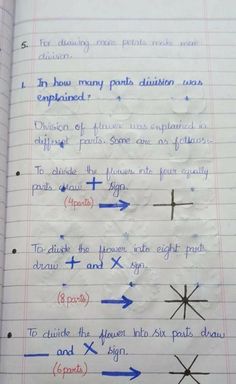 5. For drawing more petals make more
division.
1. In how many parts division was
explained?
Division of flower was explained in
different parts. Some are as follows:-
• To divide the flower into four equally
parts draw + sign.
(4 parts)
• To divide the flower into eight parts
draw + and X sign.
(8 parts)
• To divide the flower into six parts draw
— and X sign.
(6 parts)